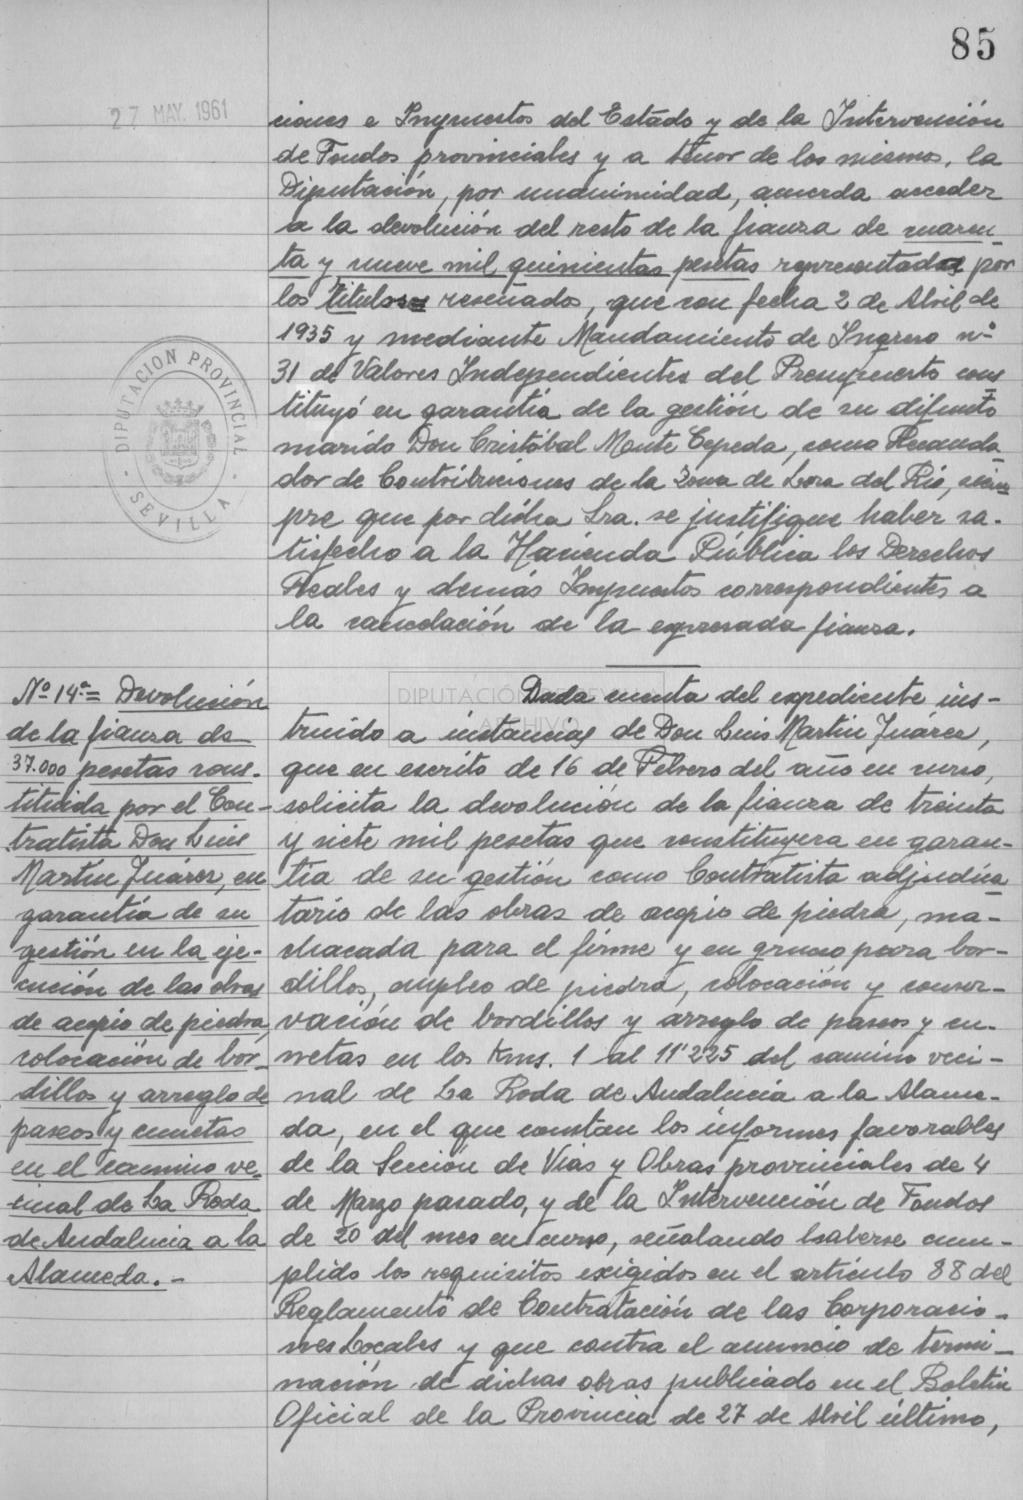 85
27 MAY. 1961
ciones e Impuestos del Estado y de la Intervención
de Fondos provinciales y a tenor de los mismos, la
Diputación, por unanimidad, acuerda acceder
a la devolución del resto de la fianza de cuaren-
ta y nueve mil quinientas pesetas representadas por
los títulos reseñados, que con fecha 2 de Abril de
1935 y mediante Mandamiento de Ingreso nº
31 de Valores Independientes del Presupuesto cons
tituyó en garantía de la gestión de su difunto
marido Don Cristóbal Monte Cepeda, como Recauda
dor de Contribuciones de la Zona de Lora del Río, siem
pre que por dicha Sra. se justifique haber sa-
tisfecho a la Hacienda Pública los Derechos
Reales y demás Impuestos correspondientes a
la cancelación de la expresada fianza.
DIPUTACION PROVINCIAL
- SEVILLA -
Nº 14º= Devolución
de la fianza de
37.000 pesetas cons-
tituida por el Con-
tratista Don Luis
Martín Juárez, en
garantía de su
gestión en la eje-
cución de las obras
de acopio de piedra,
colocación de bor-
dillos y arreglo de
paseos y cunetas
en el camino ve-
cinal de La Roda
de Andalucía a la
Alameda.-
Dada cuenta del expediente ins-
truido a instancias de Don Luis Martín Juárez,
que en escrito de 16 de Febrero del año en curso,
solicita la devolución de la fianza de treinta
y siete mil pesetas que constituyera en garan-
tía de su gestión como Contratista adjudica
tario de las obras de acopio de piedra, ma-
chacada para el firme y en grueso para bor-
dillos, empleo de piedra, colocación y conser-
vación de bordillos y arreglo de paseos y cu-
netas en los Kms. 1 al 11'225 del camino veci-
nal de La Roda de Andalucía a la Alame-
da, en el que constan los informes favorables
de la Sección de Vías y Obras provinciales de 4
de Marzo pasado, y de la Intervención de Fondos
de 20 del mes en curso, señalando haberse cum-
plido los requisitos exigidos en el artículo 88 del
Reglamento de Contratación de las Corporacio-
nes Locales y que contra el anuncio de termi-
nación de dichas obras publicado en el Boletín
Oficial de la Provincia de 27 de Abril último,